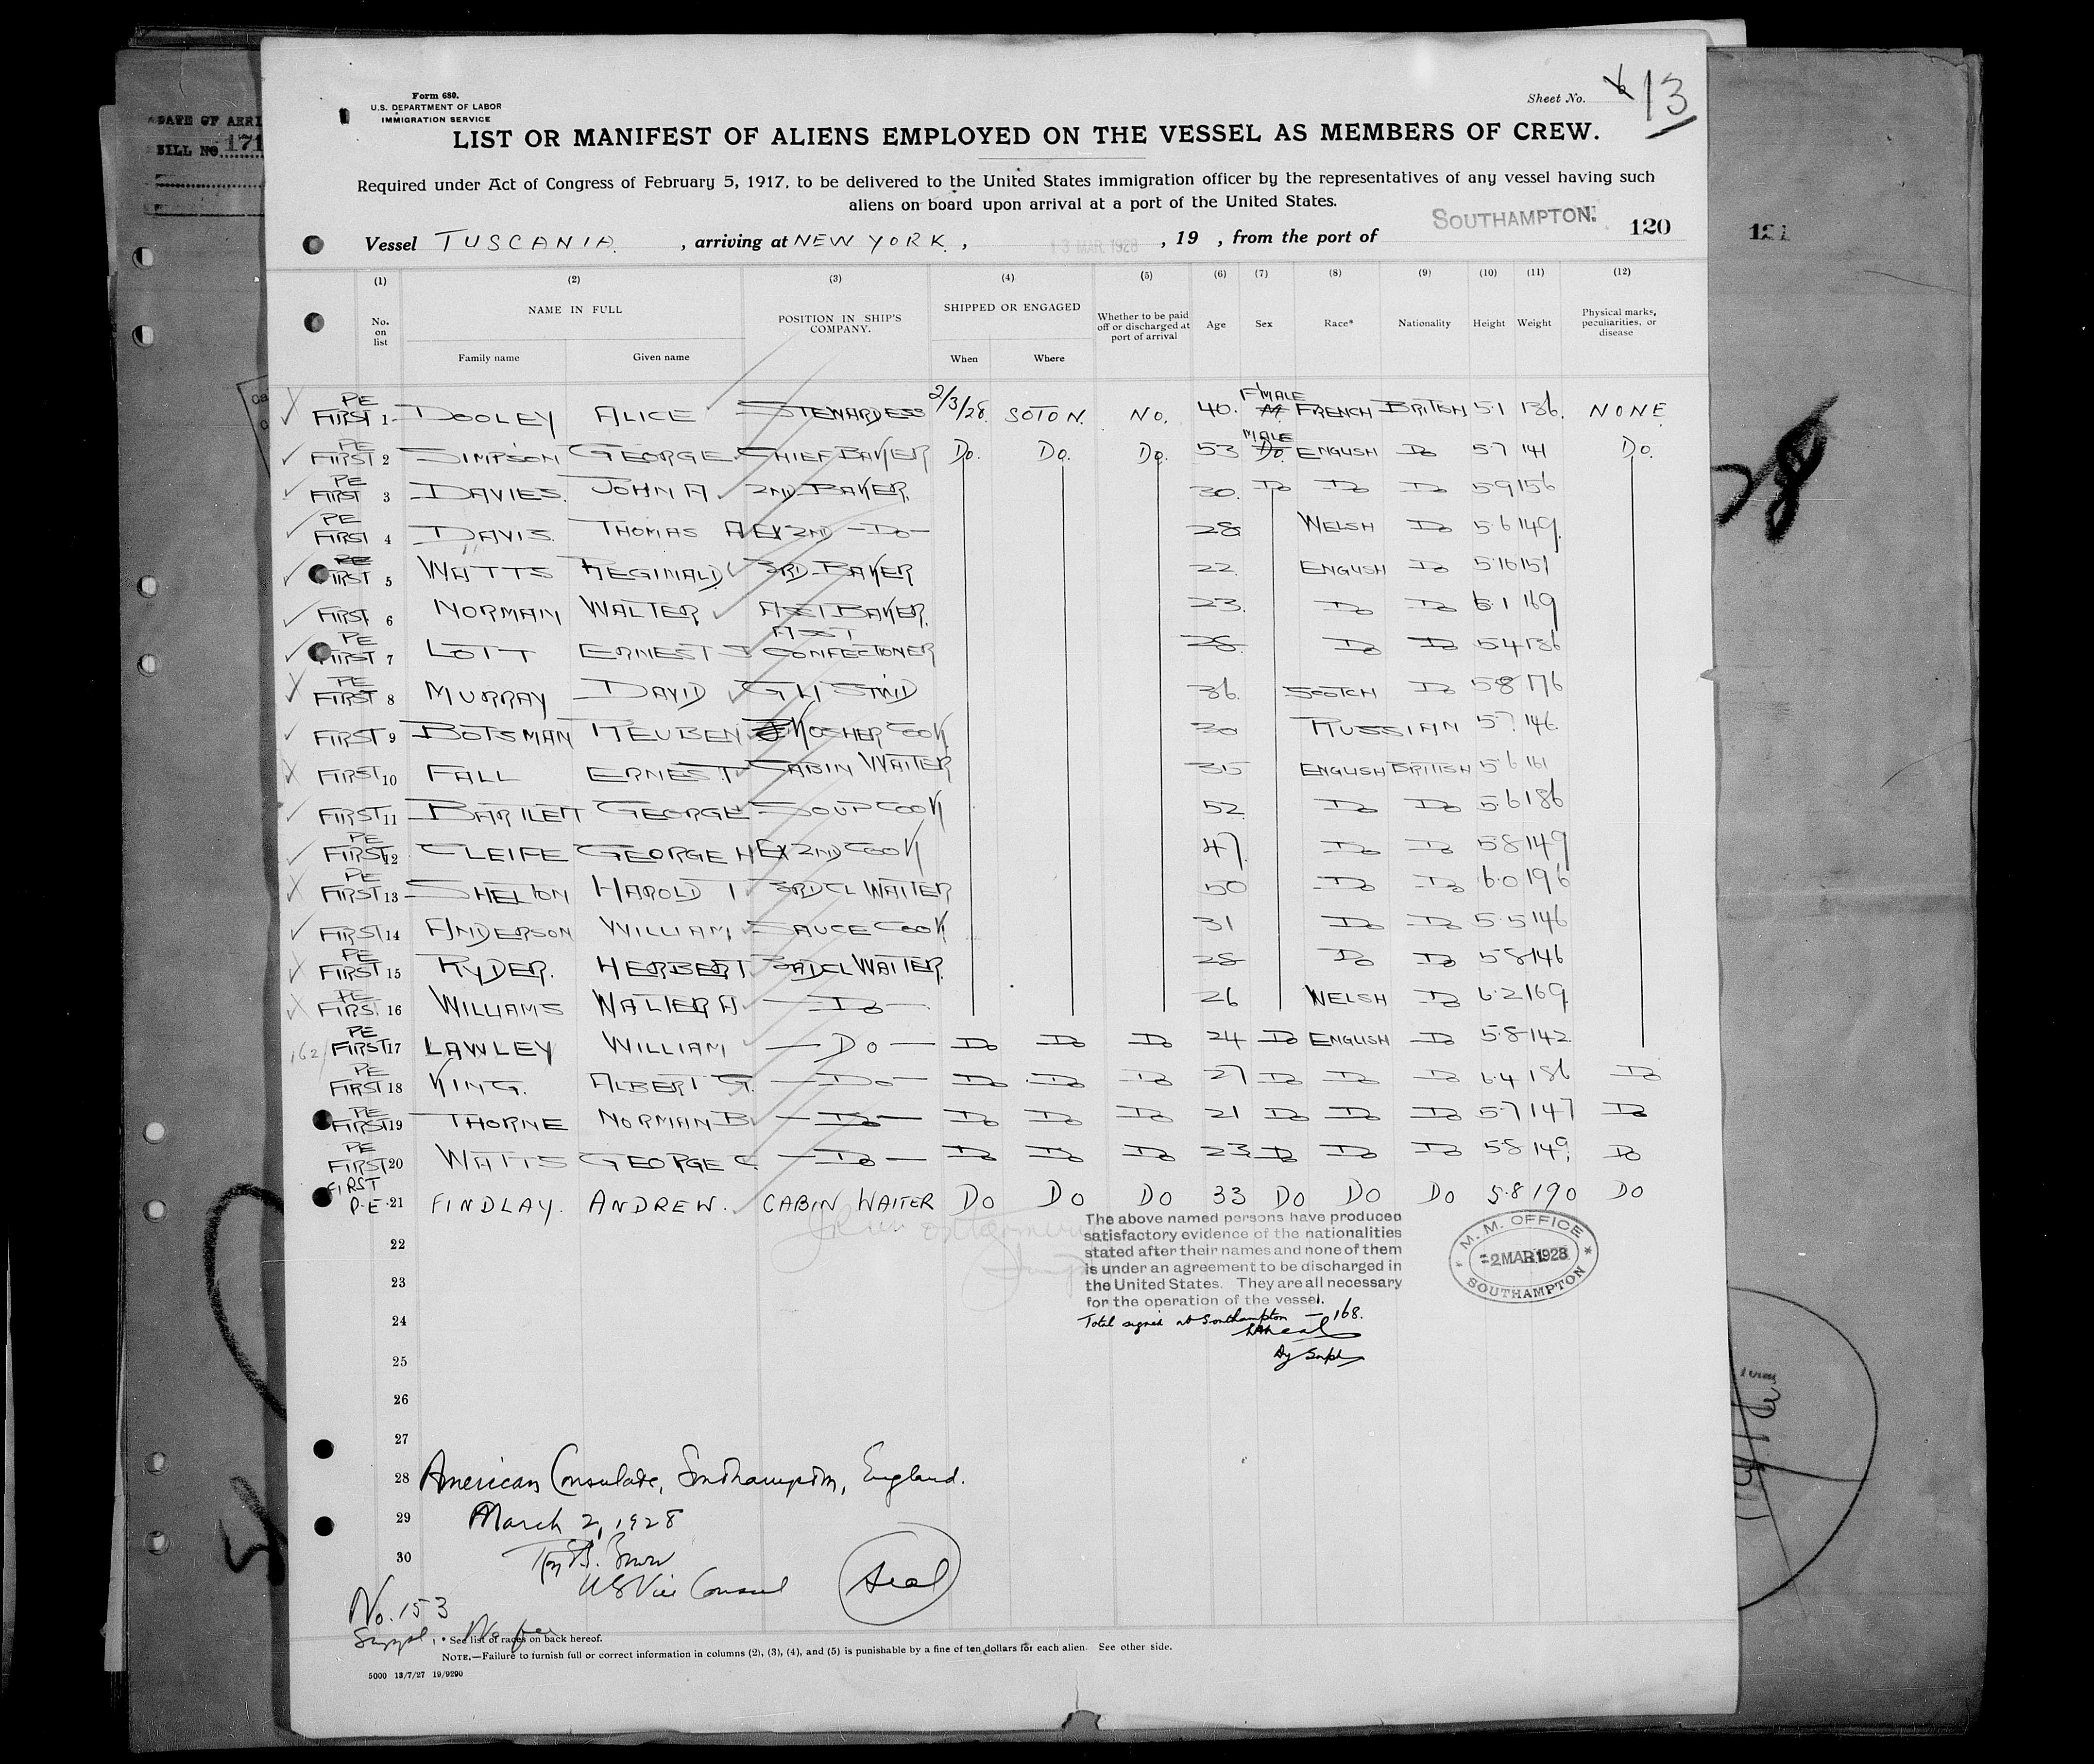 DATE OF ARRI
BILL NO. 171
Form 680.
U.S. DEPARTMENT OF LABOR
IMMIGRATION SERVICE
Sheet No. 13
LIST OR MANIFEST OF ALIENS EMPLOYED ON THE VESSEL AS MEMBERS OF CREW.
Required under Act of Congress of February 5, 1917, to be delivered to the United States immigration officer by the representatives of any vessel having such
aliens on board upon arrival at a port of the United States.
Vessel TUSCANIA, arriving at NEW YORK, 13 MAR 1928, 19 , from the port of SOUTHAMPTON. 120
(1) (2) (3) (4) (5) (6) (7) (8) (9) (10) (11) (12)
No. on list NAME IN FULL Family name Given name POSITION IN SHIP'S COMPANY. SHIPPED OR ENGAGED When Where Whether to be paid off or discharged at port of arrival Age Sex Race* Nationality Height Weight Physical marks, peculiarities, or disease
PE FIRST 1 DOOLEY ALICE STEWARDESS 2/3/28 SOTON. NO. 40. FMALE FRENCH BRITISH 5.1 136. NONE
PE FIRST 2 SIMPSON GEORGE CHIEF BAKER Do. Do. Do. 53 MALE ENGLISH Do 5.7 141 Do.
PE FIRST 3 DAVIES. JOHN A 2ND BAKER. 30. Do Do Do 5.9 156
PE FIRST 4 DAVIS. THOMAS A EX 2ND —Do— 28 WELSH Do 5.6 149.
PE FIRST 5 WATTS REGINALD 3RD BAKER 22. ENGLISH Do 5.10 151
FIRST 6 NORMAN WALTER ASST BAKER. 23. Do Do 6.1 169
PE FIRST 7 LOTT ERNEST J ASST CONFECTIONER 28. Do Do 5.4 136
PE FIRST 8 MURRAY DAVID 36. SCOTCH Do 5.8 176
FIRST 9 BOTSMAN REUBEN KOSHER COOK 30 RUSSIAN 5.7 146.
FIRST 10 FALL ERNEST CABIN WAITER 35 ENGLISH BRITISH 5.6 161
FIRST 11 BARTLETT GEORGE SOUP COOK 52 Do Do 5.6 186
PE FIRST 12 CLEIFE GEORGE H EX 2ND COOK 47. Do Do 5.8 149
PE FIRST 13 SHELTON HAROLD T 3RD CL WAITER 50 Do Do 6.0 196
FIRST 14 ANDERSON WILLIAM SAUCE COOK 31 Do Do 5.5 146
PE FIRST 15 RYDER. HERBERT 3RD CL WAITER. 28 Do Do 5.8 146
PE FIRST 16 WILLIAMS WALTER A —Do— 26 WELSH Do 6.2 169.
162/ PE FIRST 17 LAWLEY WILLIAM —Do— Do Do Do 24 Do ENGLISH Do 5.8 142.
PE FIRST 18 KING. ALBERT G. —Do— Do Do Do 27 Do Do Do 6.4 186 Do
PE FIRST 19 THORNE NORMAN B. —Do— Do Do Do 21 Do Do Do 5.7 147 Do
PE FIRST 20 WATTS GEORGE C. —Do— Do Do Do 23 Do Do Do 5.8 149. Do
FIRST P.E. 21 FINDLAY. ANDREW. CABIN WAITER Do Do Do 33 Do Do Do 5.8 190 Do
The above named persons have produced
satisfactory evidence of the nationalities
stated after their names and none of them
is under an agreement to be discharged in
the United States. They are all necessary
for the operation of the vessel.
Total signed at Southampton — 168.
Dy Supt
M. M. OFFICE
2 MAR 1928
SOUTHAMPTON
22
23
24
25
26
27
28 American Consulate, Southampton, England.
29 March 2, 1928
30
US Vice Consul
Seal
No. 153
Suppl. No fee
* See list of races on back hereof.
NOTE.—Failure to furnish full or correct information in columns (2), (3), (4), and (5) is punishable by a fine of ten dollars for each alien. See other side.
5000 13/7/27 19/9290